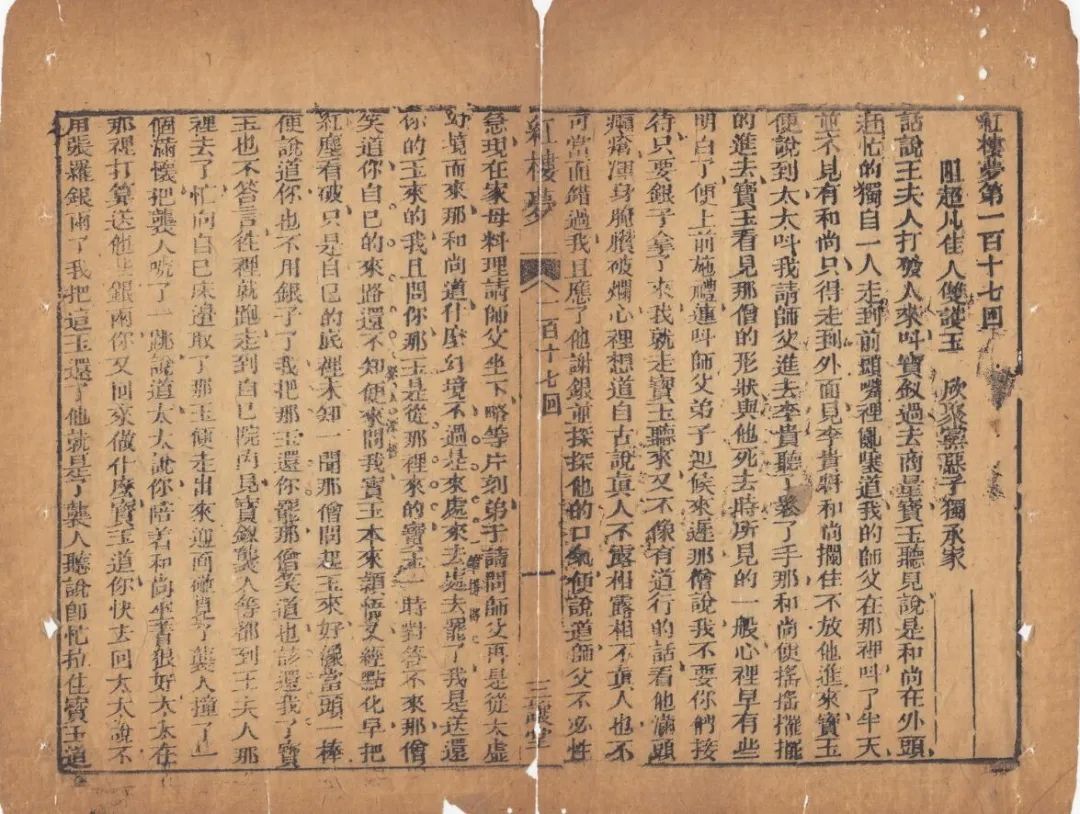 紅樓夢第一百十七回
阻超凡佳人雙護玉　欣聚黨惡子獨承家
話說王夫人打發人來呌寶釵過去商量寶玉聽見說是和尚在外頭
赶忙的獨自一人走到前頭嘴裡亂嚷道我的師父在那裡呌了半天
並不見有和尚只得走到外面見李貴將和尚攔住不放他進來寶玉
便說到太太呌我請師父進去李貴聽了鬆了手那和尚便搖搖擺擺
的進去寶玉看見那僧的形狀與他死去時所見的一般心裡早有些
明白了便上前施禮連呌師父弟子迎候來遲那僧說我不要你們接
待只要銀子拿了來我就走寶玉聽來又不像有道行的話看他滿頭
癩瘡渾身腌臢破爛心裡想道自古說眞人不露相露相不眞人也不
可當面錯過我且應了他謝銀並探探他的口氣便說道師父不必性
紅樓夢　一百十七回　一　三讓堂
急現在家母料理請師父坐下略等片刻弟子請問師父再是從太虛
幻境而來那和尚道什麼幻境不過是來處來去處去罷了我是送還
你的玉來的我且問你那玉是從那裡來的寶玉一時對答不來那僧
笑道你自己的來路還不知便來問我寶玉本來頴悟又經點化早把
紅塵看破只是自己的底裡未知一聞那僧問起玉來好像當頭一棒
便說道你也不用銀子了我把那玉還你罷那僧笑道也該還我了寶
玉也不答言徃裡就跑走到自己院內見寶釵襲人等都到王夫人那
裡去了忙向自己床邊取了那玉便走出來迎面碰見了襲人撞了一
個滿懷把襲人唬了一跳說道太太說你陪着和尚坐着狠好太太在
那裡打算送他些銀兩你又回來做什麼寶玉道你快去回太太說不
用張羅銀兩了我把這玉還了他就是了襲人聽說卽忙拉住寶玉道